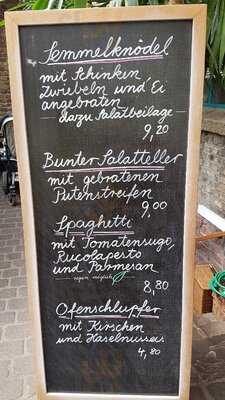 Semmelknödel
mit Schinken,
Zwiebeln und Ei
angebraten
dazu Salatbeilage
9,20
Bunter Salatteller
mit gebratenen
Putenstreifen
9,00
Spaghetti
mit Tomatensugo,
Rucolapesto
und Parmesan
vegan möglich
8,80
Ofenschlupfer
mit Kirschen
und Haselnüssen
4,80